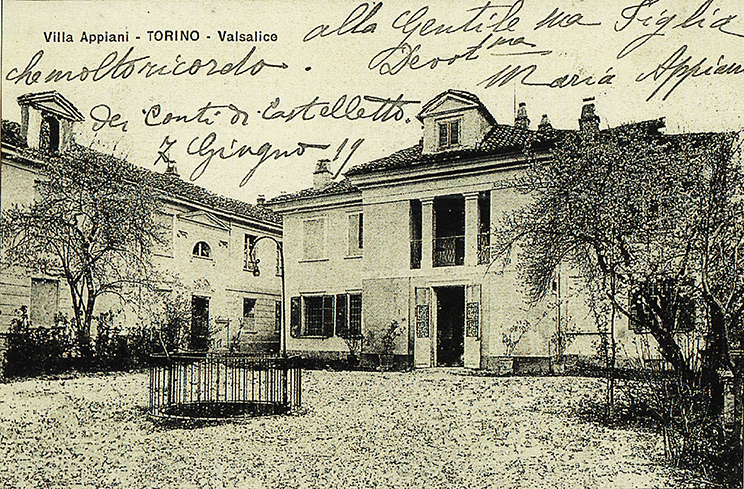 Villa Appiani - TORINO - Valsalice
alla Gentile ma Figlia
che molto ricordo.
Devotma
Maria Appiani
dei Conti di Castelletto.
7 Giugno 19